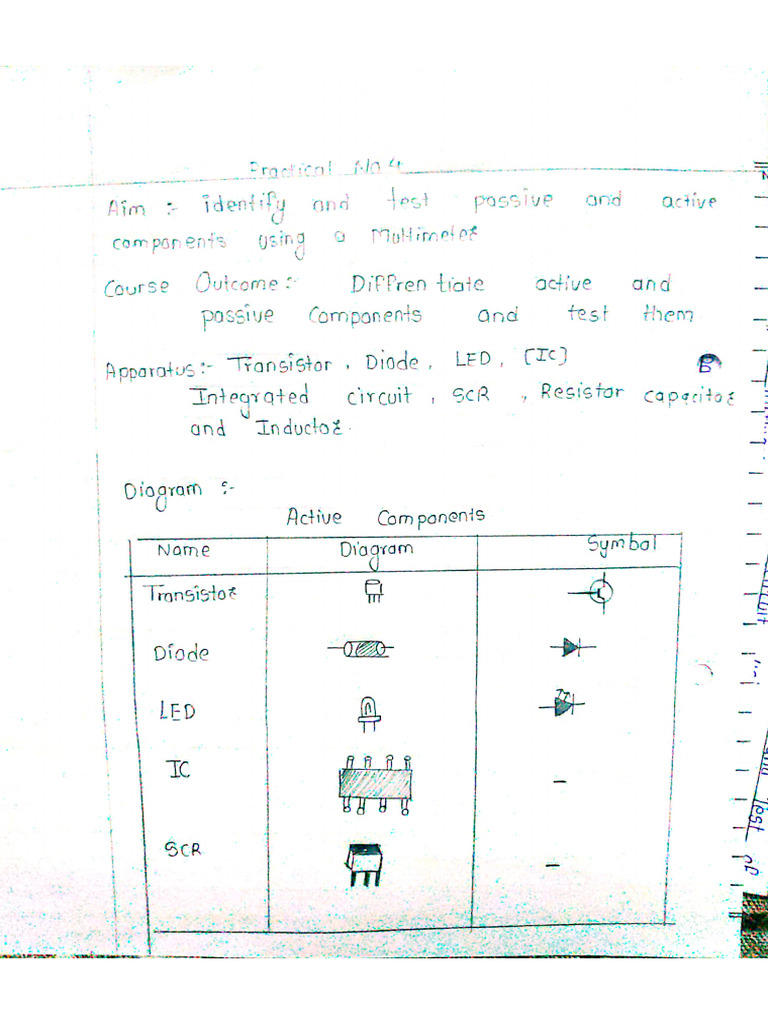 Practical No 4
Aim :- identify and test passive and active
components using a Multimeter
Course Outcome:- Diffrentiate active and
passive Components and test them
Apparatus:- Transistor, Diode, LED, [IC]
Integrated circuit, SCR, Resistor capacitor
and Inductor.
Diagram :-
Active Components
Name Diagram Symbol
Transistor
Diode
LED
IC -
SCR -